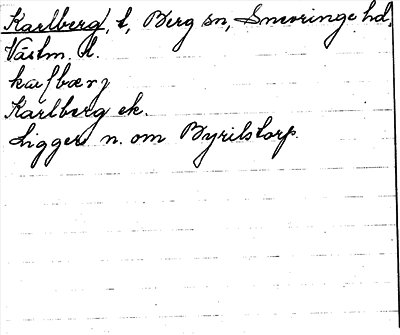 Karlberg, t, Berg sn, Snevringe hd,
Västm. l.
Karlberg ek.
Ligger n. om Byrilstorp.